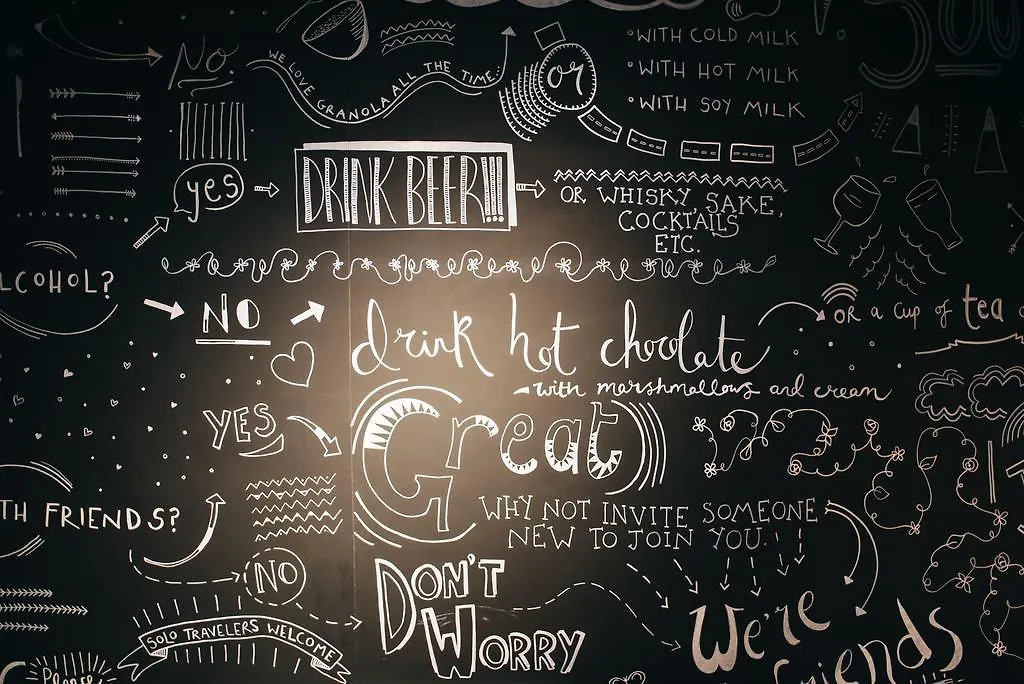 No.
WE LOVE GRANOLA ALL THE TIME.
or
WITH COLD MILK
WITH HOT MILK
WITH SOY MILK
yes
DRINK BEER!!!
OR WHISKY, SAKE,
COCKTAILS
ETC.
LCOHOL?
NO
drink hot choolate
with marshmallows and cream
OR a cup of tea
YES
Great
TH FRIENDS?
WHY NOT INVITE SOMEONE
NEW TO JOIN YOU.
NO
DON'T
WORRY
SOLO TRAVELERS WELCOME
We're
friends
Please